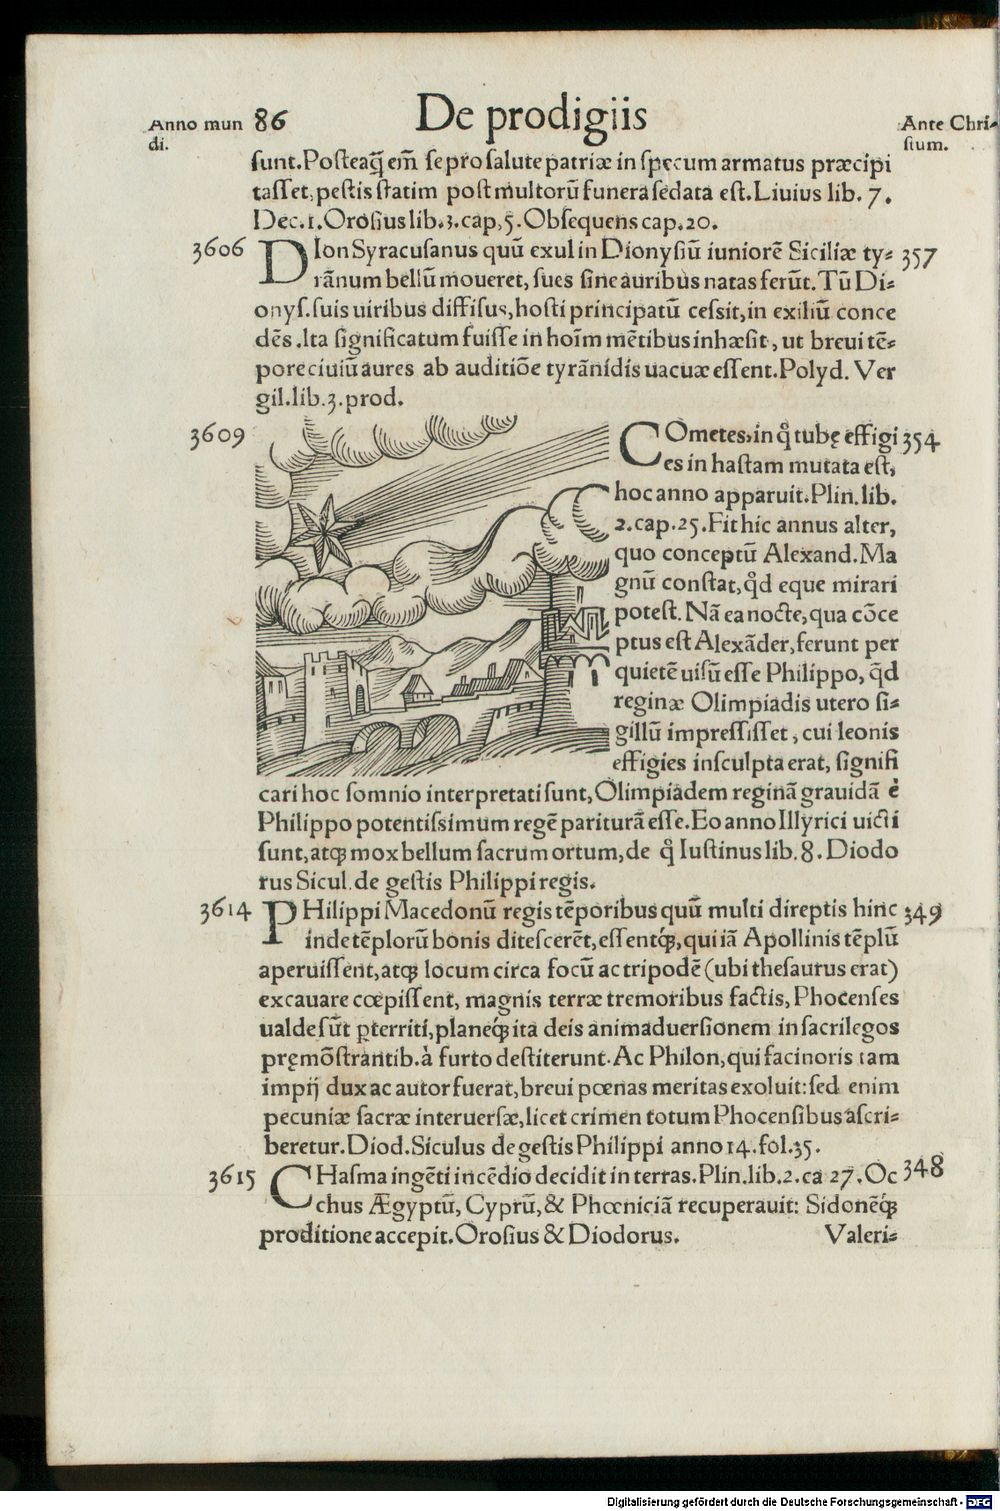 Anno mundi. 86 De prodigiis Ante Christium.
sunt. Posteaq̃ em̃ se pro salute patriæ in specum armatus præcipi
tasset, pestis statim post multorũ funera sedata est. Liuius lib. 7.
Dec. 1. Orosius lib. 3. cap, 5. Obsequens cap. 20.
3606 DIon Syracusanus quũ exul in Dionysiũ iuniorẽ Siciliæ ty- 357
rãnum bellũ moueret, sues sine auribus natas ferũt. Tũ Di-
onys. suis uiribus diffisus, hosti principatũ cessit, in exiliũ conce
dẽs. Ita significatum fuisse in hoĩm mẽtibus inhæsit, ut breui tẽ-
pore ciuiũ aures ab auditiõe tyrãnidis uacuæ essent. Polyd. Ver
gil. lib. 3. prod.
3609 COmetes, in q̊ tubę effigi 354
es in hastam mutata est,
hoc anno apparuit. Plin. lib.
2. cap. 25. Fit hic annus alter,
quo conceptũ Alexand. Ma
gnũ constat, q̊d eque mirari
potest. Nã ea nocte, qua cõce
ptus est Alexãder, ferunt per
quietẽ uisũ esse Philippo, q̃d
reginæ Olimpiadis utero si-
gillũ impressisset, cui leonis
effigies insculpta erat, signifi
cari hoc somnio interpretati sunt, Olimpiadem reginã grauidã è
Philippo potentissimum regẽ pariturã esse. Eo anno Illyrici uicti
sunt, atq; mox bellum sacrum ortum, de q̊ Iustinus lib. 8. Diodo
rus Sicul. de gestis Philippi regis.
3614 PHilippi Macedonũ regis tẽporibus quũ multi direptis hinc 349
inde tẽplorũ bonis ditescerẽt, essentq́;, qui iã Apollinis tẽplũ
aperuissent, atq; locum circa focũ ac tripodẽ (ubi thesaurus erat)
excauare cœpissent, magnis terræ tremoribus factis, Phocenses
ualde sũt ꝑterriti, planeq́; ita deis animaduersionem in sacrilegos
pręmõstrantib. à furto destiterunt. Ac Philon, qui facinoris tam
impij dux ac autor fuerat, breui pœnas meritas exoluit: sed enim
pecuniæ sacræ interuersæ, licet crimen totum Phocensibus ascri-
beretur. Diod. Siculus de gestis Philippi anno 14. fol. 35.
3615 CHasma ingẽti incẽdio decidit in terras. Plin. lib. 2. ca 27. Oc 348
chus Ægyptũ, Cyprũ, & Phœniciã recuperauit: Sidonẽq́;
proditione accepit. Orosius & Diodorus. Valeri-
Digitalisierung gefördert durch die Deutsche Forschungsgemeinschaft - DFG